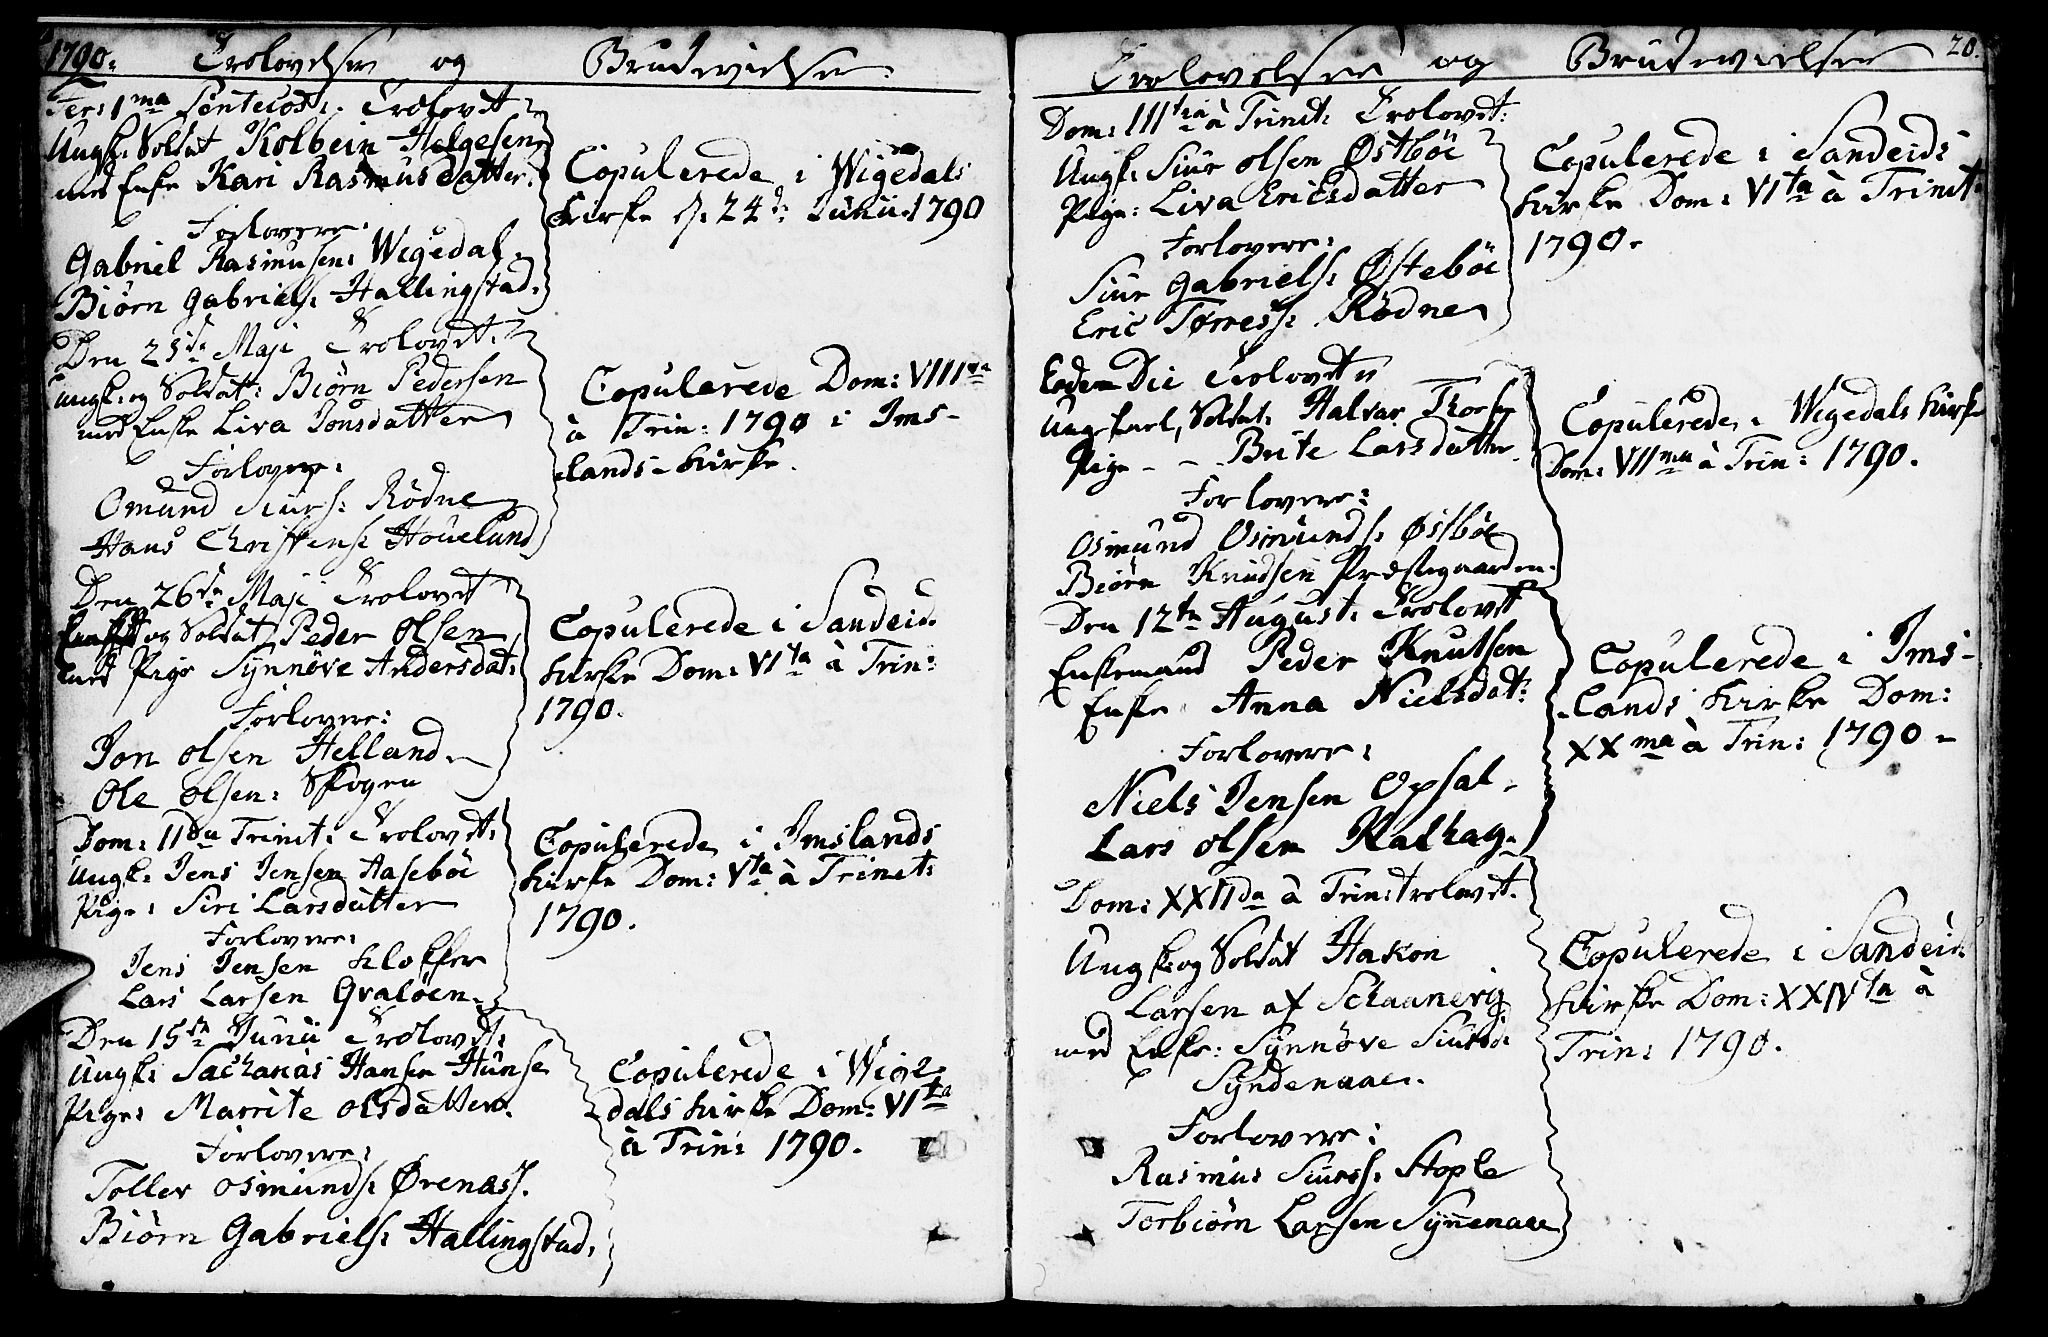 1790. Trolovelser og Brudevielser.
Fer: 1ma Pentecost: Trolovet
Ungk: Soldat Kolbein Helgesen
med Enke Kari Rasmusdatter.
Forlovere:
Gabriel Rasmusen: Wigedal
Biörn Gabriels: Hallingstad.
Copulerede i Wigedals
Kirke d: 24de Junii 1790
Den 25de Maji Trolovet:
Ungk: og Soldat: Biörn Pedersen
med Enke Liva Jonsdatter
Forlovere:
Omund Siurs: Rödne
Hans Christens: Houelund
Copulerede Dom: VIIIva
à Trin: 1790 i Ims-
lands-Kirke.
Den 26de Maji Trolovet
og Soldat Peder Olsen
med Pige Synnöve Andersdat:
Forlovere:
Jon Olsen Helland
Ole Olsen: Skogen
Copulerede i Sandeid
Kirke Dom: VIta à Trin:
1790.
Dom: IIda Trinit: Trolovet:
Ungk: Jens Jensen Aaseböe
Pige: Siri Larsdatter
Forlovere:
Jens Jensen Klokker
Lars Larsen Qvalöen
Copulerede i Imslands
Kirke Dom: Vta à Trinit:
1790.
Den 15de Junii Trolovet:
Ungk: Sacharias Hansen Hunse
Pige: Marrite Olsdatter
Forlovere:
Tollev Osmunds: Ørenass.
Biörn Gabriels: Hallingstad.
Copulerede i Wige-
dals Kirke Dom: VIta
à Trin: 1790.
Trolovelser og Brudevielser 20.
Dom: IIItia à Trinit: Trolovet:
Ungk: Siur Olsen Østböe
Pige: Liva Ericsdatter
Forlovere:
Siur Gabriels: Østeböe
Eric Tørress: Rödne
Copulerede i Sandeids
Kirke Dom: VIta à Trinit:
1790.
Eodem Die Trolovet
Ungkarl, Soldat: Halvar
Pige - - Brite Larsdatter
Forlovere:
Osmund Osmunds: Østböe
Biörn Knudsen Præstegaarden.
Copulerede i Wigedals Kirke
Dom: VIIma à Trin: 1790.
Den 12te August: Trolovet
Enkemand Peder Knutsen
Enke Anna Nielsdat:
Forlovere:
Niels Jensen Opsal
Lars Olsen Kalhag.
Copulerede i Ims-
lands Kirke Dom:
XXma à Trin: 1790
Dom: XXIIda à Trin: trolovet.
Ungk: og Soldat Hakon
Larsen af Schaanevig
med Enke: Synnøve Siursd:
Syndenaae.
Forlovere:
Rasmus Siurss: Stople
Torbiörn Larsen Synnenaae
Copulerede i Sandeid
Kirke Dom: XXIVta à
Trin: 1790.